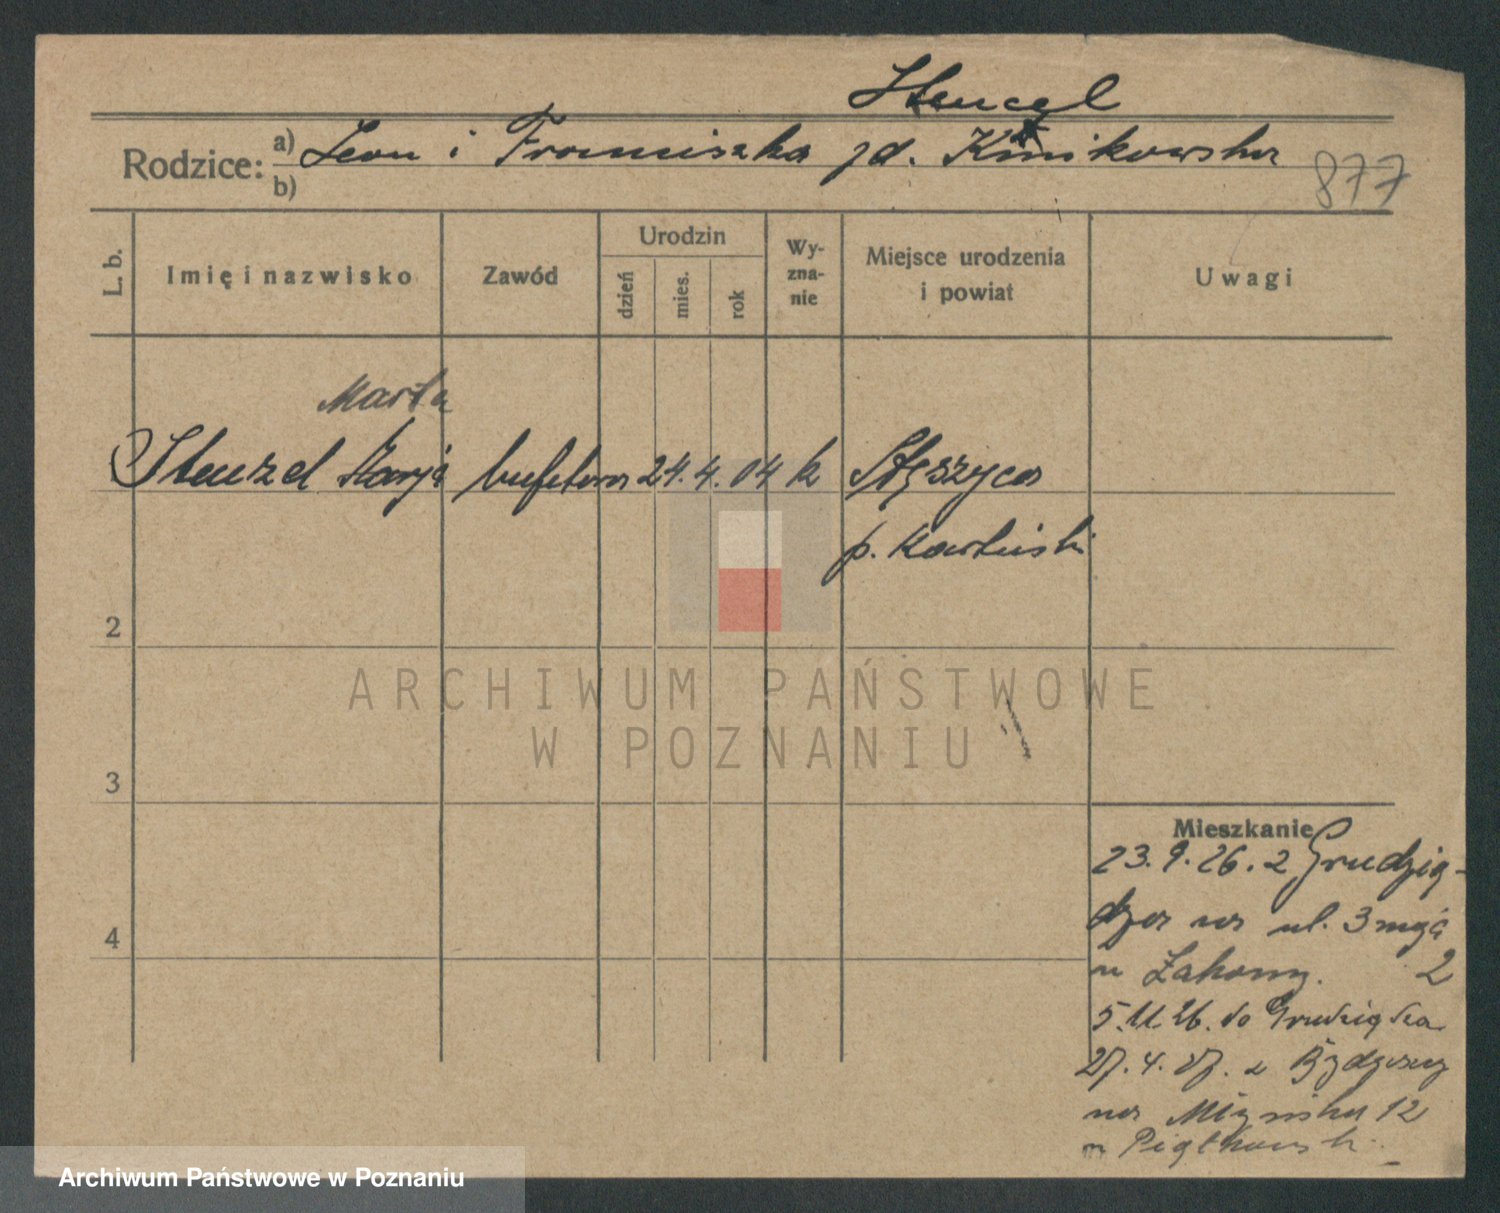 Stencel
Rodzice: a) Leon i Franciszka zd. Kmikowska
b)
877
L. b.
Imię i nazwisko
Zawód
Urodzin
dzień
mies.
rok
Wy-
zna-
nie
Miejsce urodzenia
i powiat
Uwagi
Marta
Stenzel Marja bufetowa 24. 4. 04 k Stęszyca
p. Kartuski
2
3
4
ARCHIWUM PAŃSTWOWE
W POZNANIU
Mieszkanie
23. 9. 26. z Grudzią-
dza na ul. 3 maja
u 2
5. 11. 26. do Grudziądza
27. 4. 27. z Bydgoszczy
na 12
u Piątkowski
Archiwum Państwowe w Poznaniu